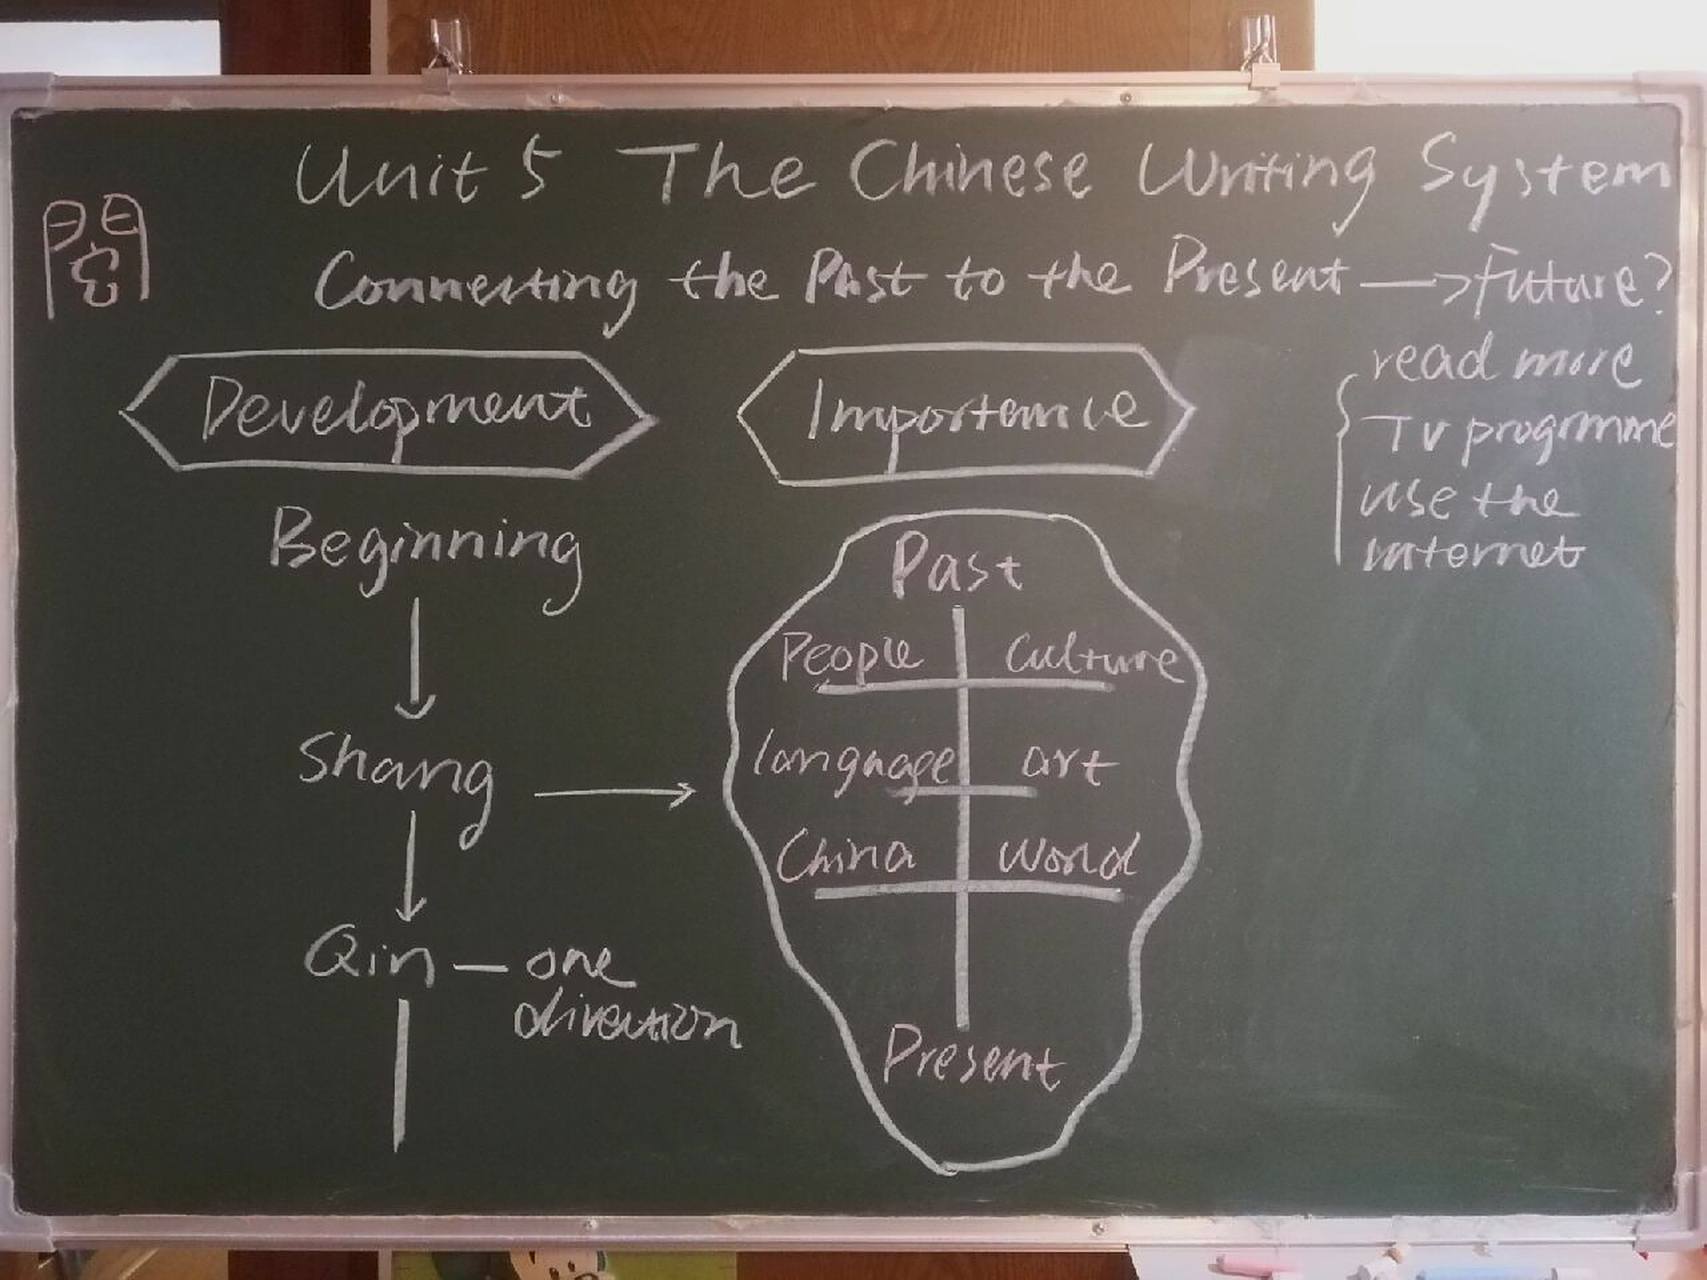 Unit 5 The Chinese Writing System
Connecting the Past to the Present —> Future?
read more
TV progrmme
use the
internet
Development
Beginning
Shang
Qin — one
direction
Importance
Past
People Culture
language art
China World
Present